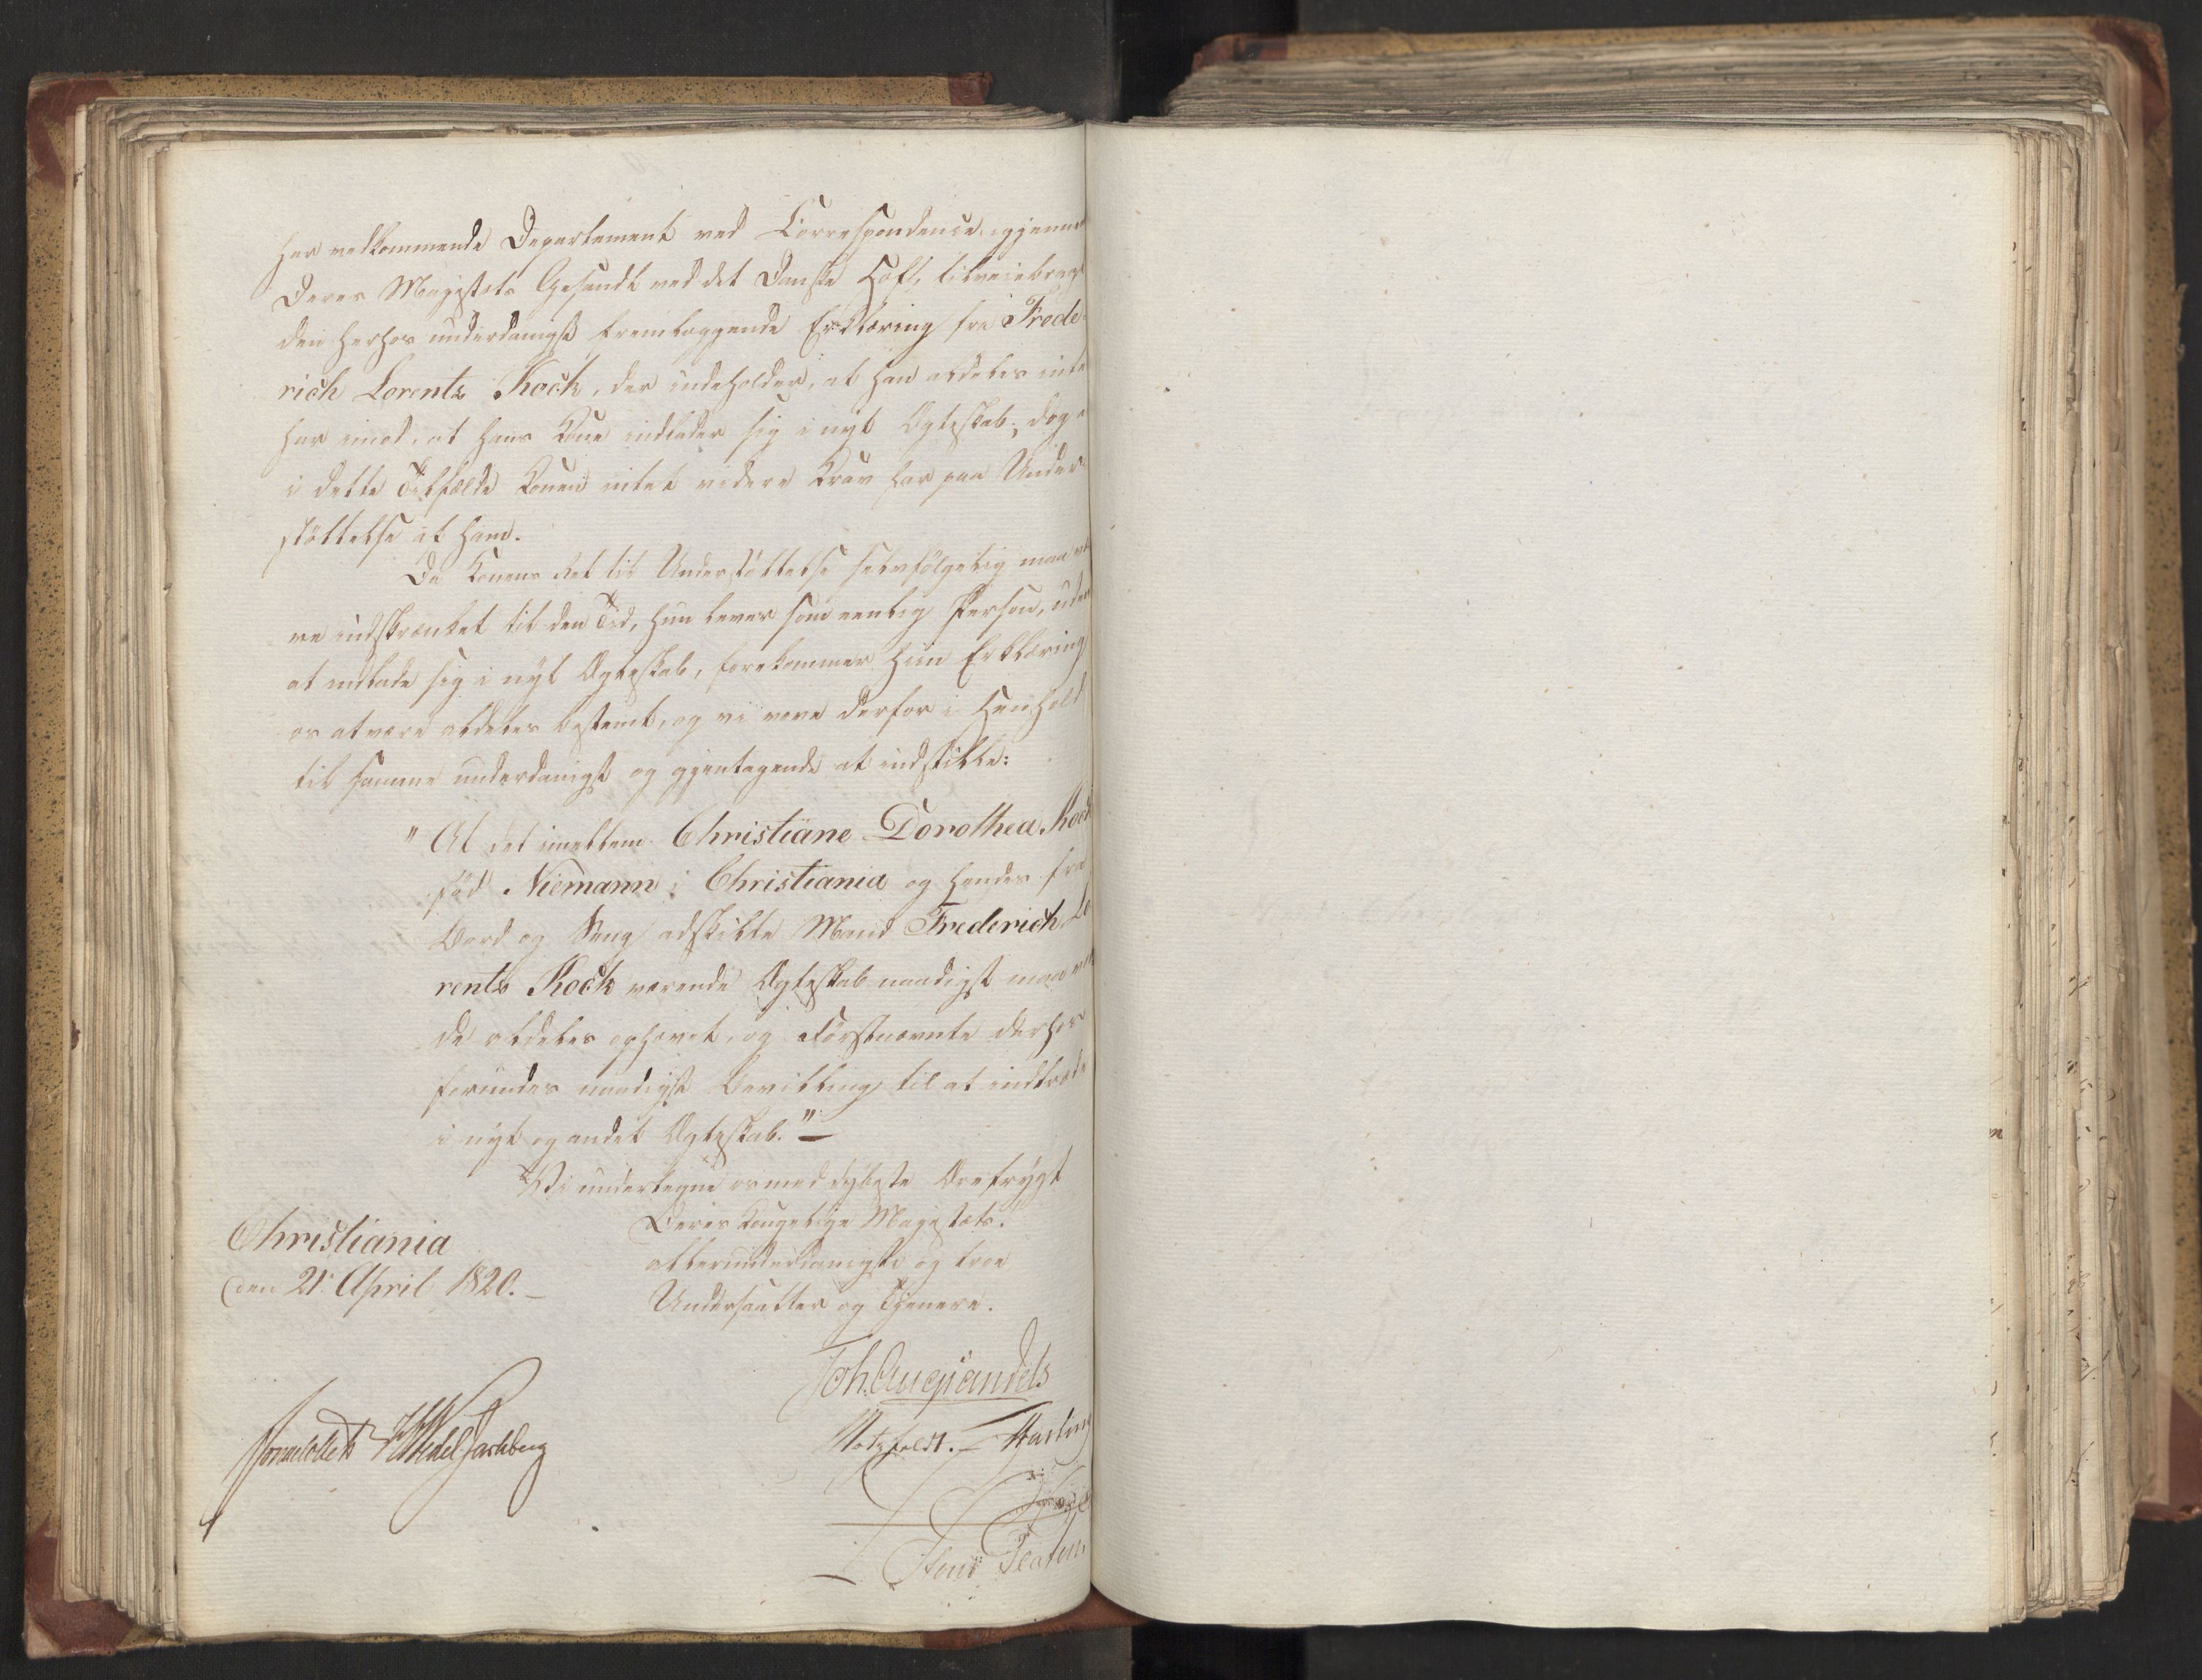 har vedkommende Departement ved Correspondence, igjennem
Deres Majestets Gesandt ved det Danske Hoff, tilveiebragt
den herhos underdanigst fremlæggende Erklæring fra Frede-
rich Lorentz Kock, der indeholder, at han aldeles intet
har imod, at hans Kone indlader sig i nyt Ægteskab, dog at
i dette Tilfælde Konen intet videre Krav har paa Under-
støttelse af ham.
Da Konens Ret til Understøttelse selvfølgelig maa væ-
re indskrænket til den Tid, hun lever som eenlig Person, uden
at indlade sig i nyt Ægteskab, forekommer hiin Erklæring
os at være aldeles bestemt, og vi vove derfor i Henhold
til samme underdanigst og gjentagende at indstille:
"At det imellem Christiane Dorothea Kock
fød Niemann i Christiania og hendes fra
Bord og Seng adskilte Mand Frederich Lo-
rentz Kock værende Ægteskab naadigst maa vor-
de aldeles ophævet, og Førstnævnte derhos
forundes naadigst Bevilling til at indtræde
i nyt og andet Ægteskab."
Vi undertegne os med dybeste Ærefrygt
Deres Kongelige Majestæts
allerunderdanigste og troe
Undersaatter og Tjenere.
Christiania
den 21 April 1820.
Joh. Aug. Sandels
Sommerhielm Wedel Jarlsberg
Motzfeldt. Fasting